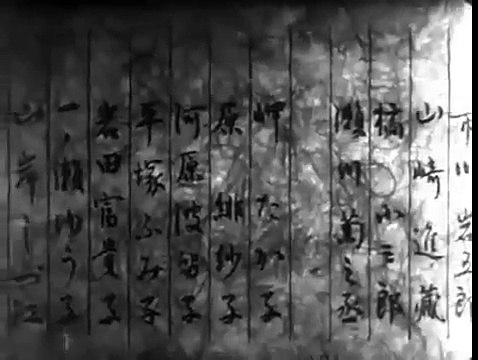 市川岩五郎
山崎進蔵
橘小三郎
瀬川菊之丞
岬たか子
原緋紗子
河原波留子
平塚ふみ子
岩田富貴子
一ノ瀬ゆう子
山岸し江